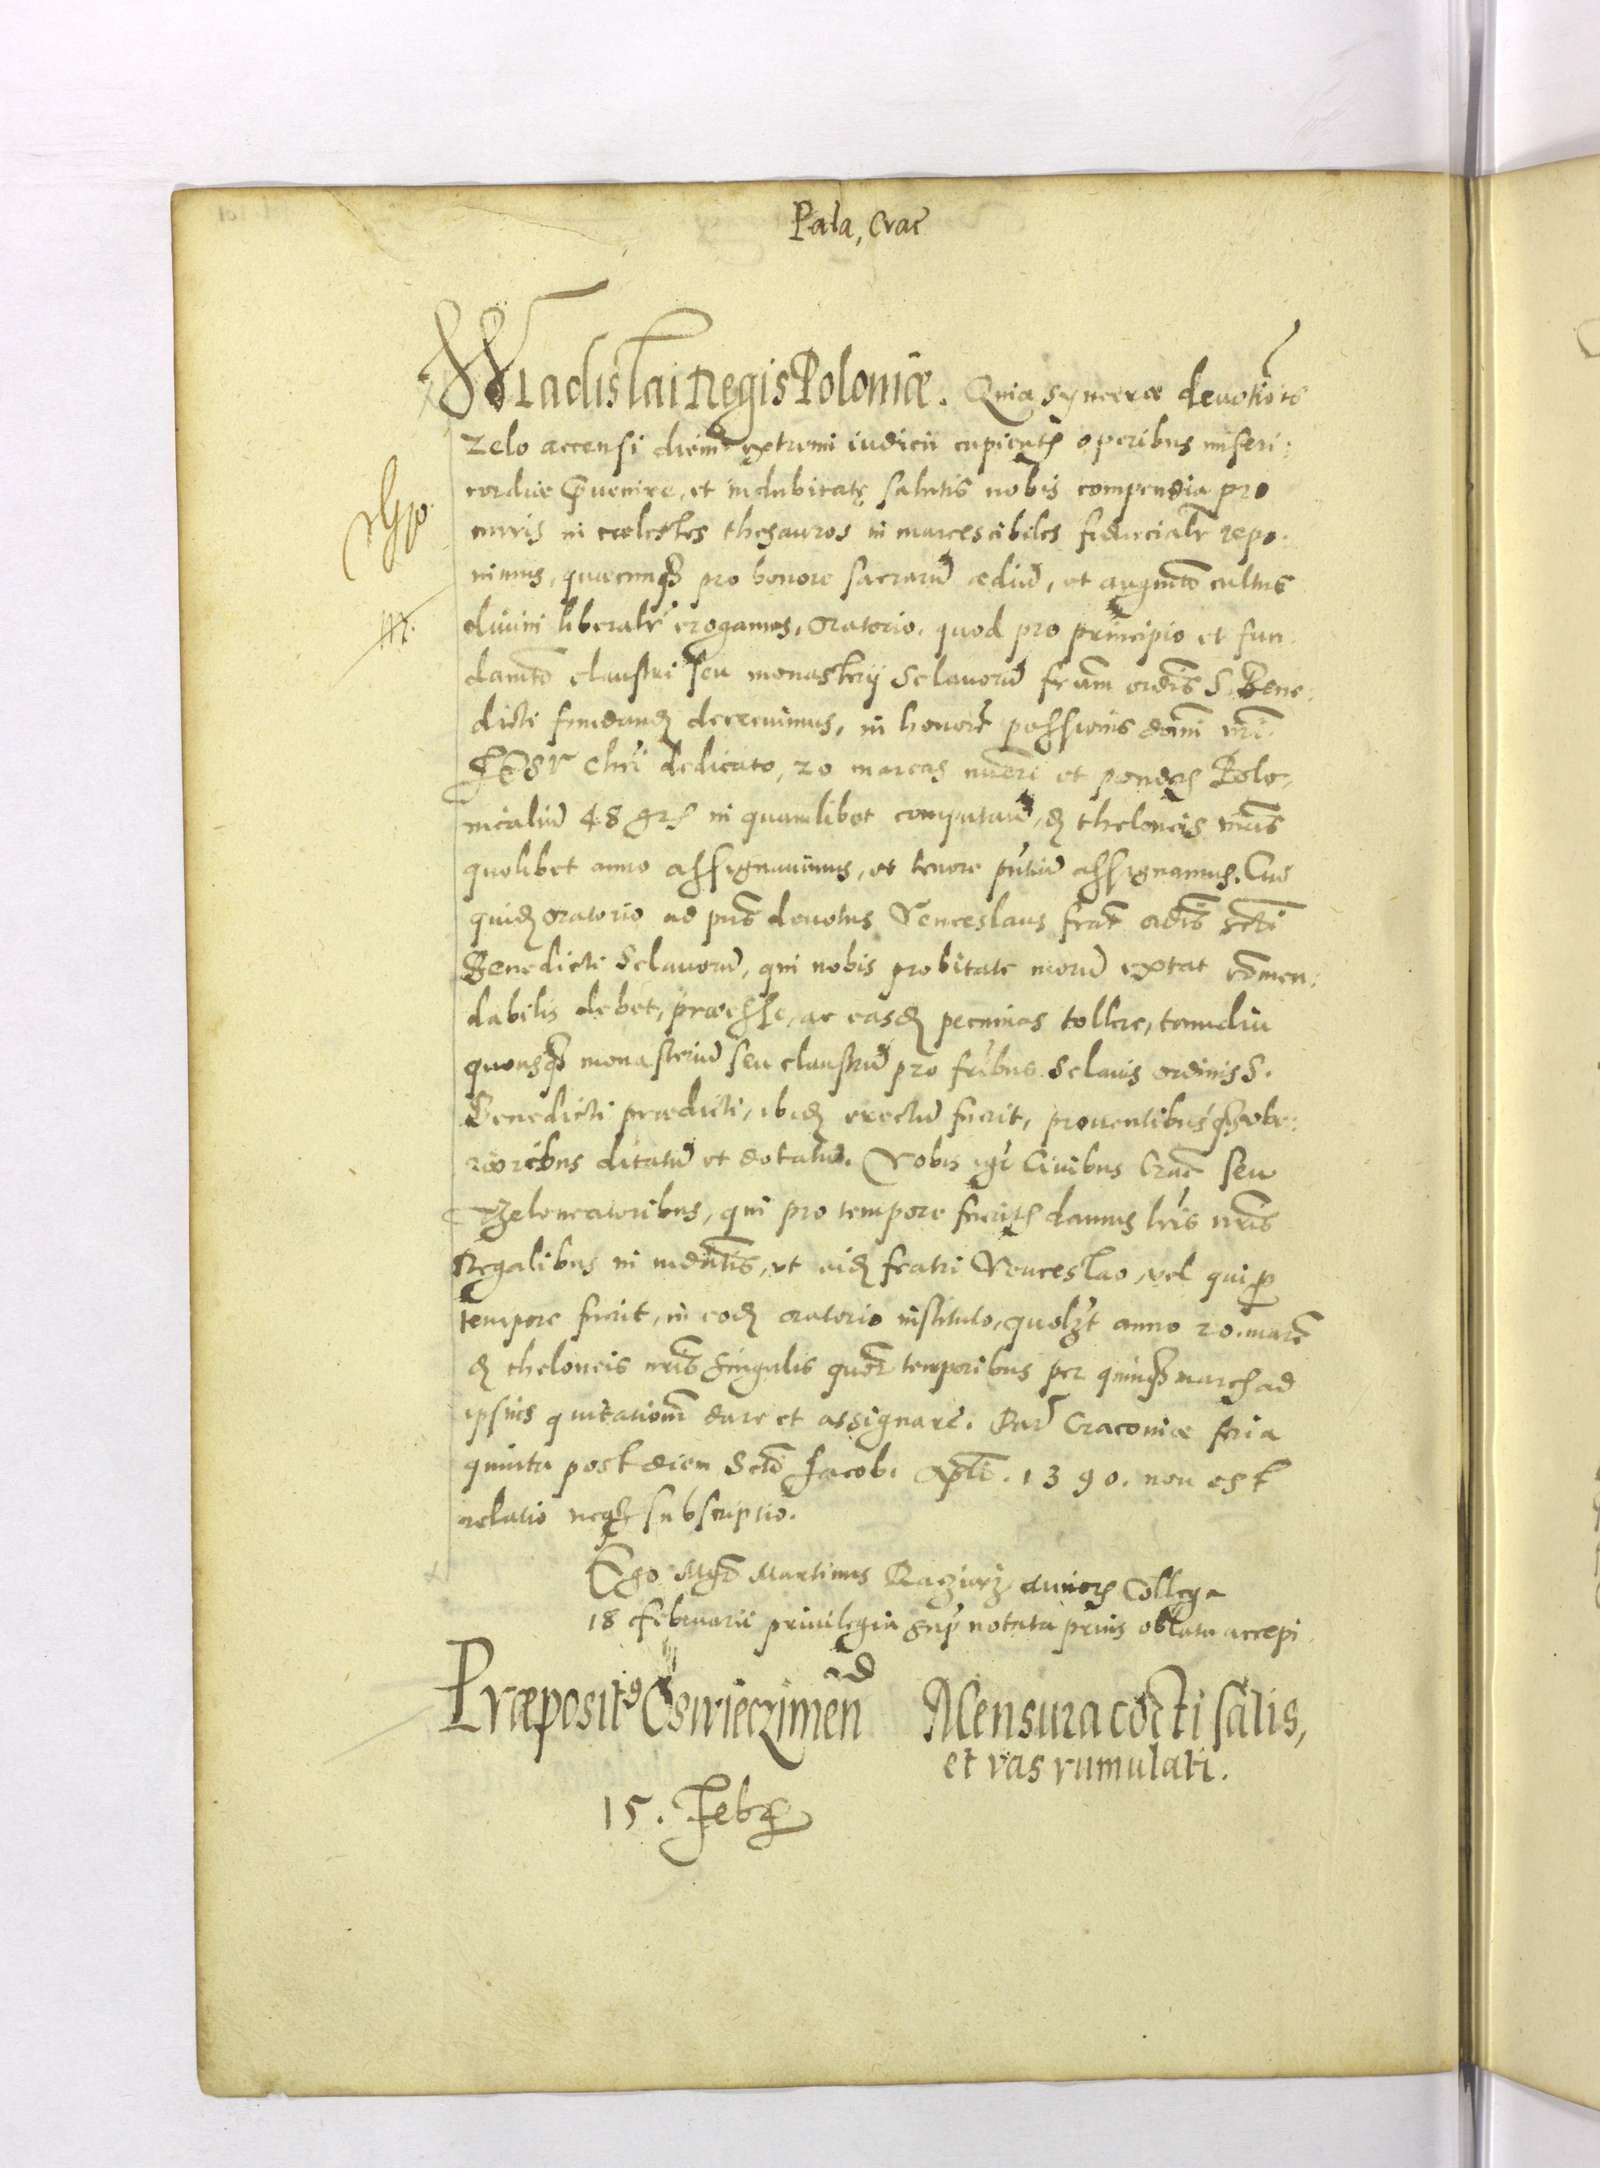 Pala, Crac
Wladislai Regis Poloniæ. Quia synceræ deuotiõis
zelo accensi diem extremi iudicii cupientes operibus miseri:
cordiæ p̃uenire, et indubitatę salutis nobis compendia pro
curris in cœlestes thesauros in marcescibiles fiducialr̃ repo.
nimus, quæcunq̃ pro honore sacrarũ ædiũ, et augmtõ cultus
diuini liberalr̃ erogamus, Oratorio. quod pro principio et fun
damtõ claustri seu monastery Sclauorũ frũm ordĩs S. Bene.
dicti fundandę decreuimus, in honorẽ passionis dñni nr̃i
Jesv Chr̃i dedicato, 20 marcas nũeri et ponderis Polo,
nicaliũ 48 grs in quamlibet computañ, de theloneis nr̃is
quolibet anno assignauimus, et tenore pñtiũ assignamus. Cui
quidẽ oratorio ad pñs deuotus Venceslaus frat̃ ordĩs Scti
Benedicti Sclauorũ, qui nobis probitate morũ extat cõmen:
dabilis debet, præesse, ac easdẽ pecunias tollere, tamdiu
quousq̃ monasteriũ seu claustrũ pro fr̃ibus Sclauis ordinis S.
Benedicti prædicti, ibidẽ erectũ fuerit, prouentibusq̃ vbe:
rioribus ditatũ et dotatũ. Vobis igr̃ Ciuibus Crac̃ seu
Theloneatoribus, qui pro tempore fuerits damus lr̃is nr̃is
Regalibus in mdñtis, vt eidẽ fratri Venceslao, vel qui ꝓ
tempore fuerit, in eodẽ oratorio instituto, quolʒt anno 20. marc̃
de theloneis nr̃is singulis quor̃ temporibus per quinq̃ marcs ad
ipsius quitationẽ dare et assignare. Dat̃ Cracoviæ feria
quinta post diem Scti Jacobi Apl̃i. 1390. non est
relatio neq̃ subscriptio.
Ego Mgr̃ Martinus Collega
18 Februarii priuilegia supr̃ notata prius oblata accepi
ad
Præposit9 Oswieczimeñ Mensura cocti salis,
et vas cumulati.
15. Febr